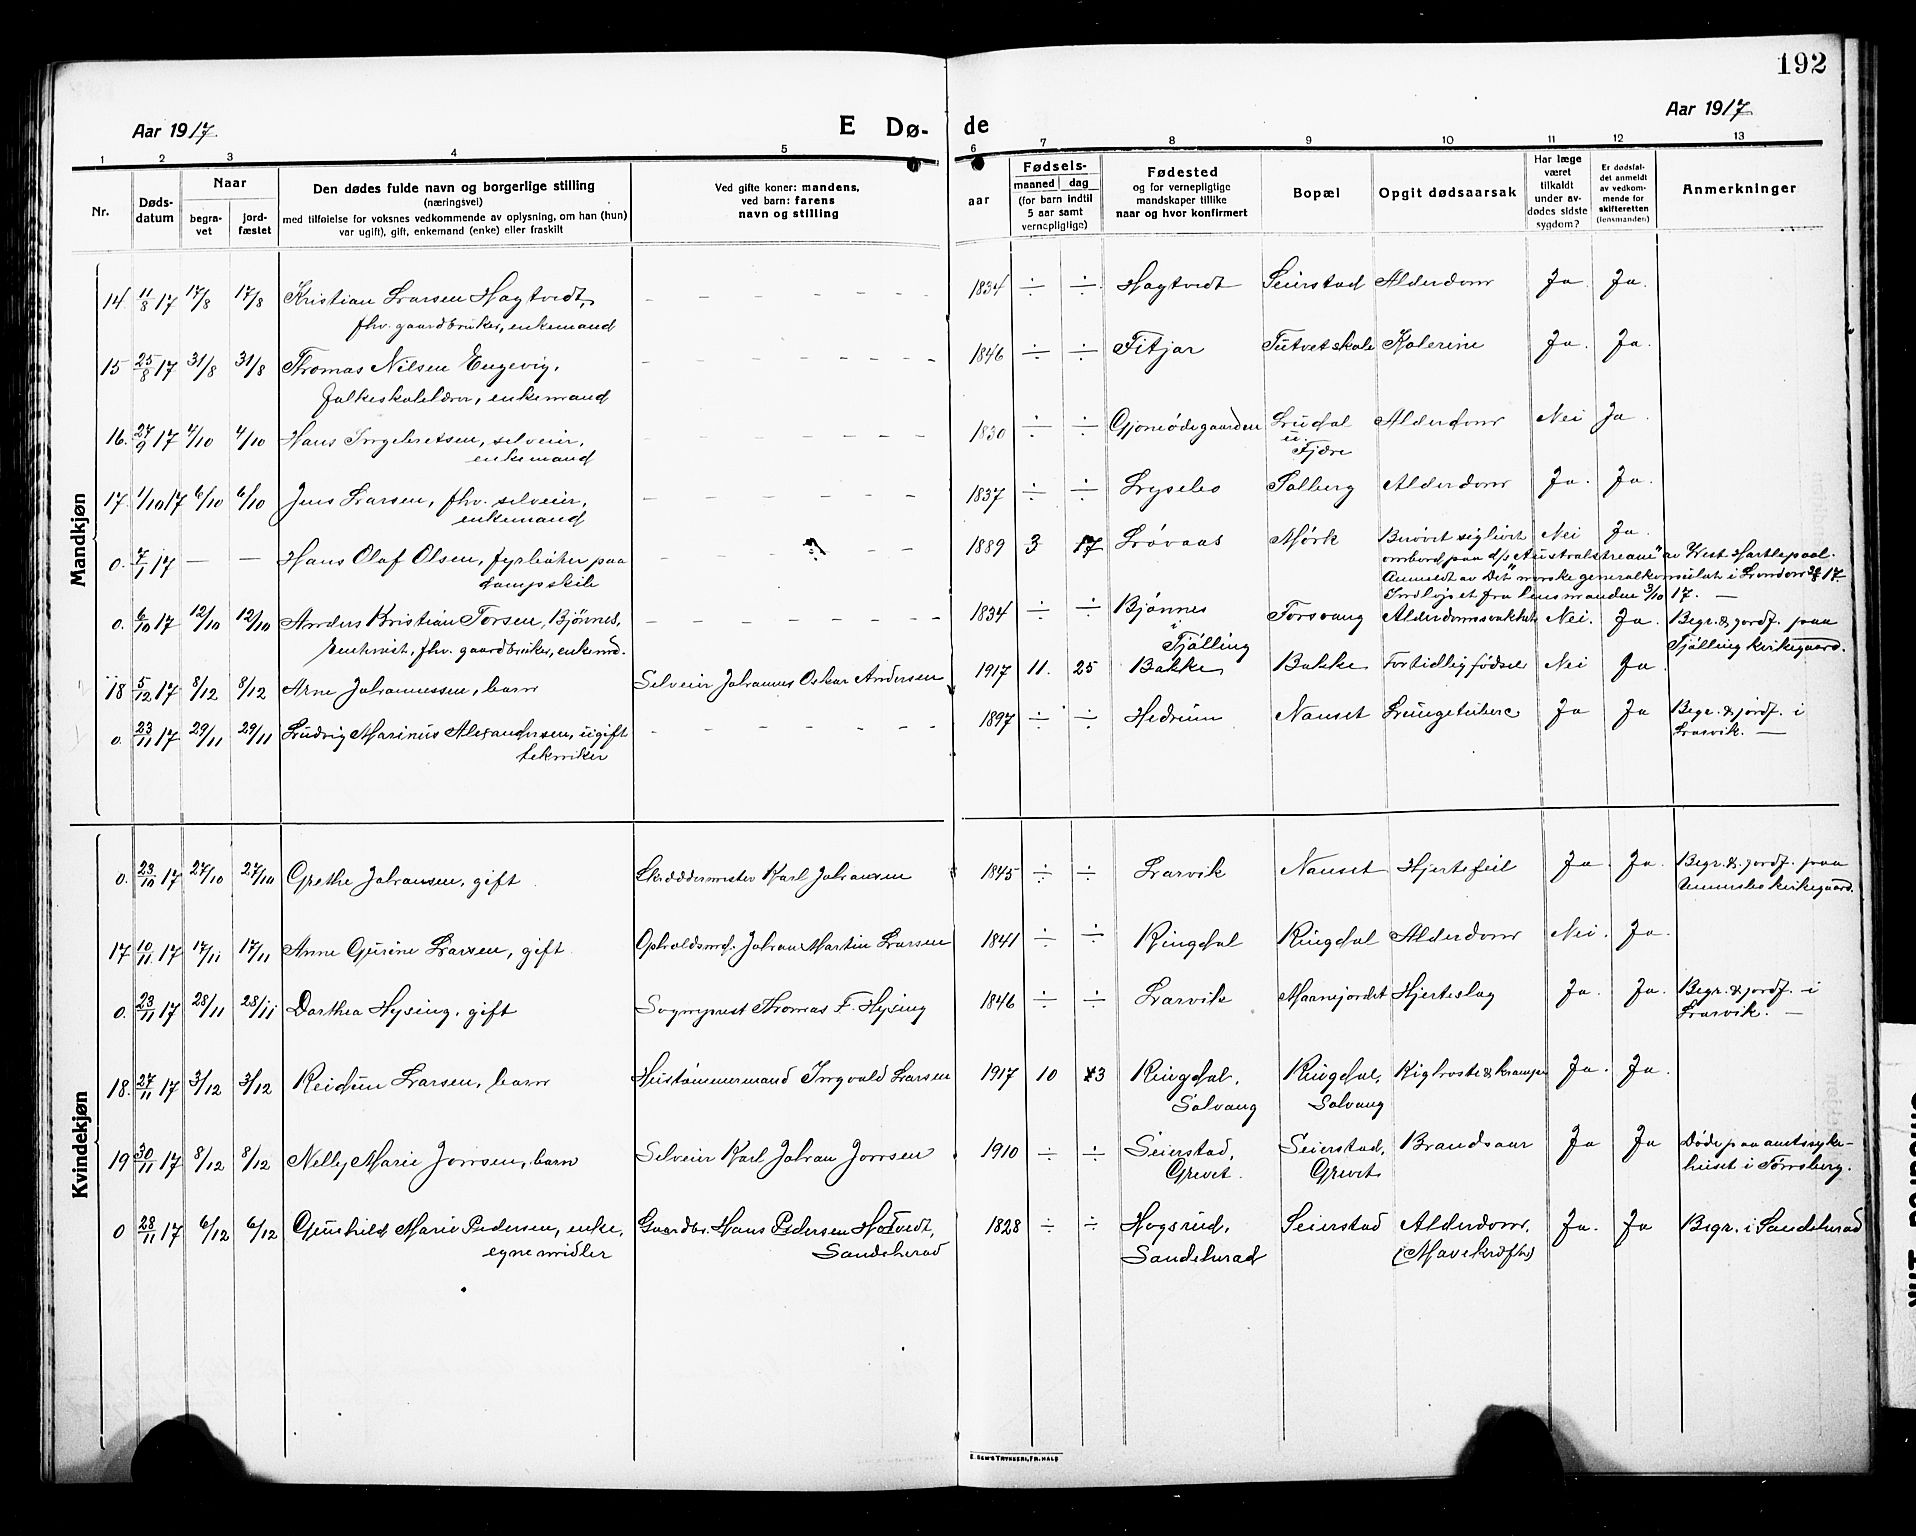 192
Aar 1917.
E Dø-
de
Aar 1917
1 2 3 4 5 6 7 8 9 10 11 12 13
Nr.
Døds-
datum
Naar
begra-
vet
jord-
fæstet
Den dødes fulde navn og borgerlige stilling
(næringsvei)
med tilføielse for voksnes vedkommende av oplysning, om han (hun)
var ugift), gift, enkemand (enke) eller fraskilt
Ved gifte koner: mandens,
ved barn: farens
navn og stilling
aar
Fødsels-
maaned dag
(for barn indtil
5 aar samt
vernepligtige)
Fødested
og for vernepligtige
mandskaper tillike
naar og hvor konfirmert
Bopæl
Opgit dødsaarsak
Har læge
været
tilkaldt
under av-
dødes sidste
sygdom?
Er dødsfal-
det anmeldt
av vedkom-
mende for
skifteretten
(lensmanden)
Anmerkninger
Mandkjøn
14 11/8 17 17/8 17/8 Kristian Larsen Hagtvedt, – – – 1834 ÷ ÷ Hagtvedt Seierstad Alderdom Ja. Ja.
fhv. gaardbruker, enkemand
15 25/8 17 31/8 31/8 Thomas Nilsen Engevig, – – – 1846 ÷ ÷ Fitjar Tutvet skole Kolerine Ja. Ja.
folkeskolelærer, enkemand
16. 27/9 17 4/10 4/10 Hans Ingebretsen, selveier, – – – 1830 ÷ ÷ Gjonødegaarden Lrudal Alderdom Nei Ja.
enkemand
u. Fjære
17. 1/10 17 6/10 6/10 Jens Larsen, fhv. selveier, – – – 1837 ÷ ÷ Lysebo Solberg Alderdom Ja. Ja.
enkemand
0. 7/1 17 — — Hans Olaf Olsen, fyrbøter paa – – – 1889 3 17 Løvaas Mørk Berøvet sig livet Nei Ja.
dampskib
ombord paa d/s "Australstream" av West Hartlepool.
Anmeldt av Det norske generalkonsulat i London 17.
Indløpet fra lensmanden 3/10 17. —
0. 6/10 17 12/10 12/10 Anders Kristian Torsen, Bjønnes, – – – 1834 ÷ ÷ Bjønnes Torsvang Alderdomssvakhet Nei. Ja. Begr. & jordf. paa
fhv. gaardbruker, enkemd. i Tjølling Tjølling kirkegaard.
18 5/12 17 8/12 8/12 Arne Johannessen, barn Selveier Johannes Oskar Andersen 1917 11. 25 Bakke Bakke Fortidlig fødsel Nei Ja.
0. 23/11 17 29/11 29/11 Ludvig Marinus Alexandersen, ugift – – – 1897 ÷ ÷ Hedrum Nanset Lungetuberc Ja Ja Begr. & jordf. i
tekniker
Larvik. —
Kvindekjøn
0. 23/10 17 27/10 27/10 Grethe Johansen, gift Skræddermester Karl Johansen 1845 ÷ ÷ Larvik Nanset Hjertefeil Ja Ja. Begr. & jordf. paa
Undersbo kirkegaard.
17 10/11 17 17/11 17/11 Anne Gurine Larsen, gift. Opholdsmd. Johan Martin Larsen 1841 ÷ ÷ Ringdal Ringdal Alderdom Nei. Ja.
0. 23/11 17 28/11 28/11 Dorthea Hysing, gift Sogneprest Thomas F. Hysing 1846 ÷ ÷ Larvik Maanejordet Hjerteslag Ja. Ja. Begr. & jordf. i
Larvik. —
18. 27/11 17 3/12 3/12 Reidun Larsen, barn Hustømmermand Ingvald Larsen 1917 10 3 Ringdal, Ringdal, Kighoste & kramper Ja. Ja.
Solvang Solvang
19 30/11 17 8/12 8/12 Nelly Marie Jonsen, barn Selveier Karl Johan Jonsen 1910 ÷ ÷ Seierstad, Seierstad, Brandsaar Ja Ja Døde paa amtssyke-
Grevet. Grevet huset i Tønsberg.
0 28/11 17 6/12 6/12 Gunhild Marie Pedersen, enke, Gaardbr. Hans Pedersen Hotvedt, 1828 ÷ ÷ Hogsrud, Seierstad Alderdom, Ja. Ja Begr. i Sandeherad
egne midler Sandeherad Sandeherad (Mavekræft)
E. SEM'S TRYKKERI, FR.HALD